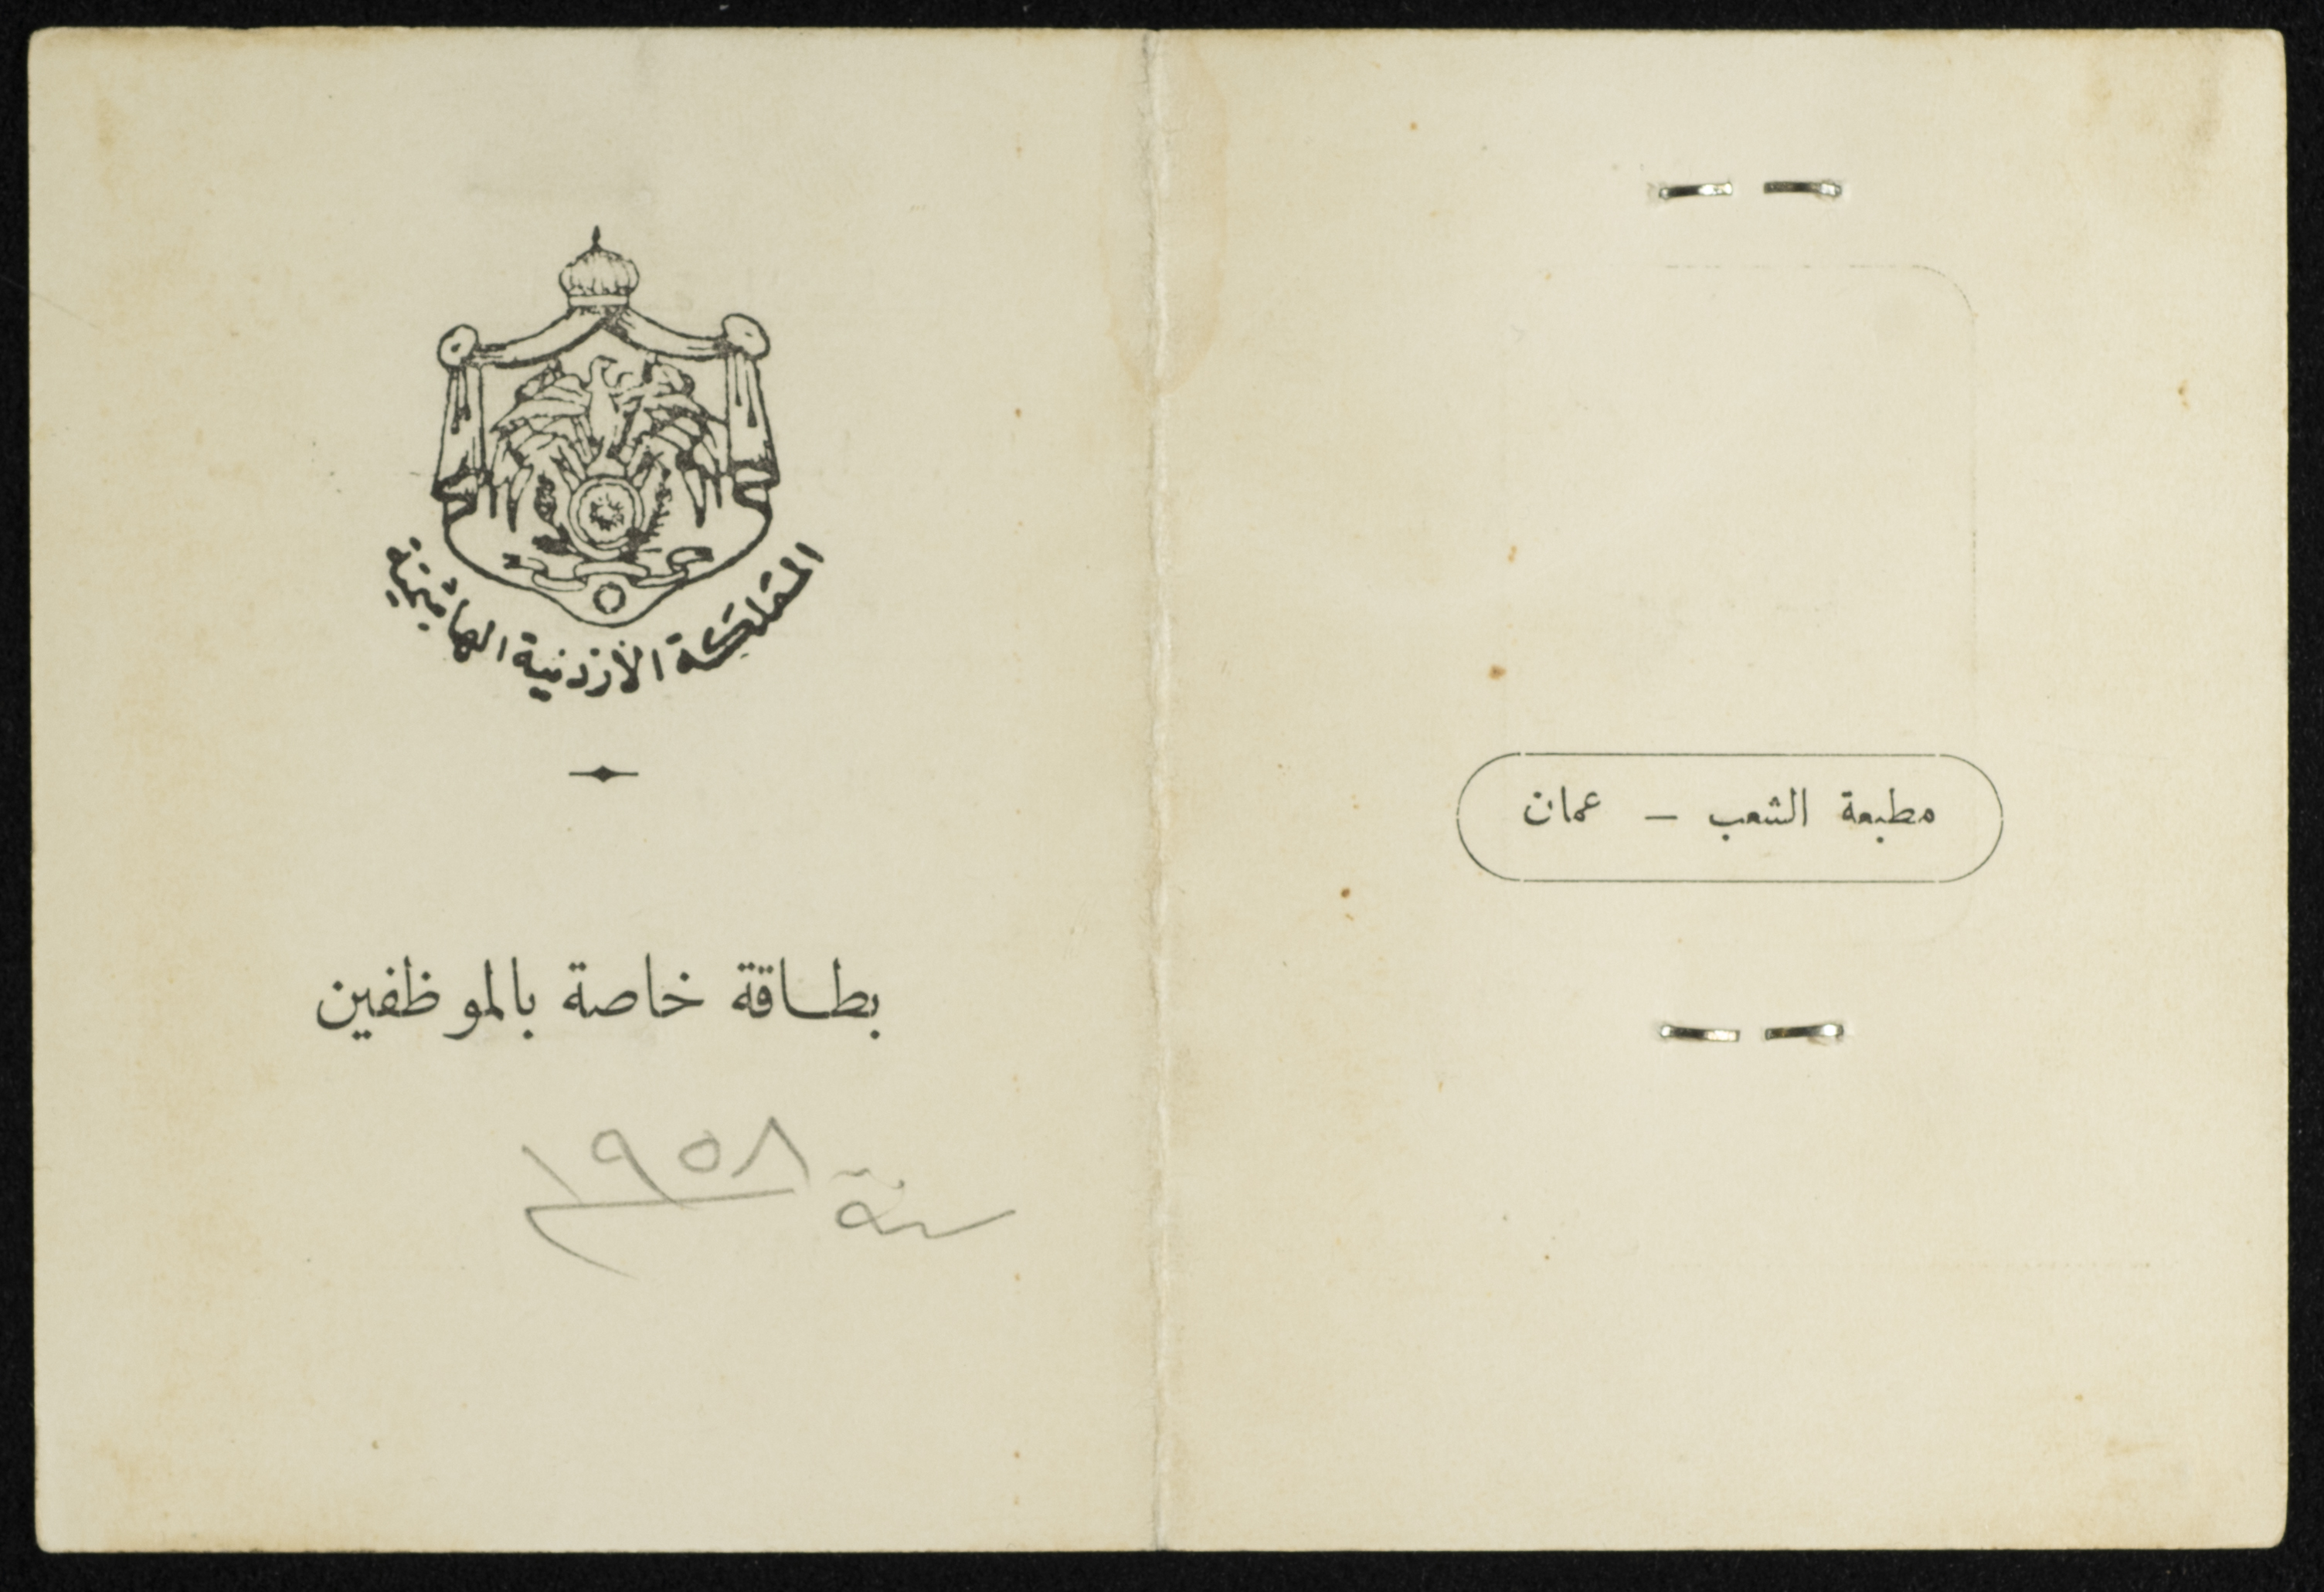 المملكة الأردنية الهاشمية
بطاقة خاصة بالموظفين
سنة ١٩٥٨
مطبعة الشعب - عمان